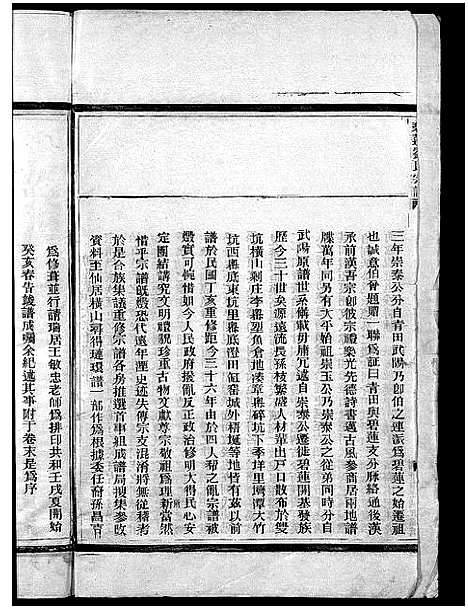 三年崇泰公分自青田武陽乃卽伯之連派爲碧蓮之始遷祖
也誠意伯曾題贈一聯爲証曰青田與碧蓮支分脉絡通後漢
承前漢吾宗卽彼宗禮樂光先德詩書邁古風參商居兩地譜
牒萬年同另有太平始祖崇玉公乃崇泰公之從弟同時分自
武陽原譜世系燬毋庸冗述自崇泰公遷居碧蓮開基發族
歷今三十世矣源遠流長孫枝繁盛人材輩出戶口散布於雙
坑橫山剩庄李 塱魚倉地湊章 碎坑下季垟里塆潭大竹
坑西 底東坑里 底澄田缸窑城外梧埏等地惟有茲以前
譜於民國丁亥重修距今三十六年由於四人幫之亂宗譜被
燬實可惋惜如今人民政府撥亂反正政治修明大得民心安
定團結講究文明禮貌珍重古物文獻尊宗敬祖爲理所當然
惜乎宗譜旣燬恐代遠年湮史迹失傳宗支混淆將無從稽考
於是合族集議重修宗譜各房推選首事組成譜局搜集參攷
資料玉仙居橫山尋得璉環譜一部作爲根據委任裔孫昌
爲修葺並行譜瑞居王敏忠老師爲排印共和壬戌夏開始
癸亥春告竣譜成囑余紀述其事附丁卷末是爲序